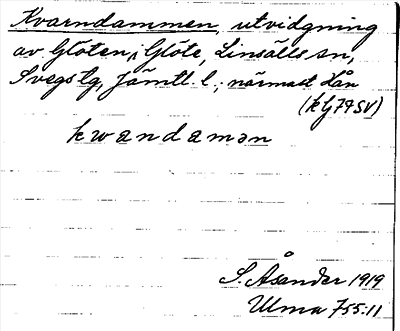 Kvarndammen, utvidgning
av Glöten, Glöte, Linsälls sn,
Svegs tg, Jämtl. l.; närmast Hån
(kfj 79 SV)
kwandamən
S. Åsander 1919
Ulma 755:11